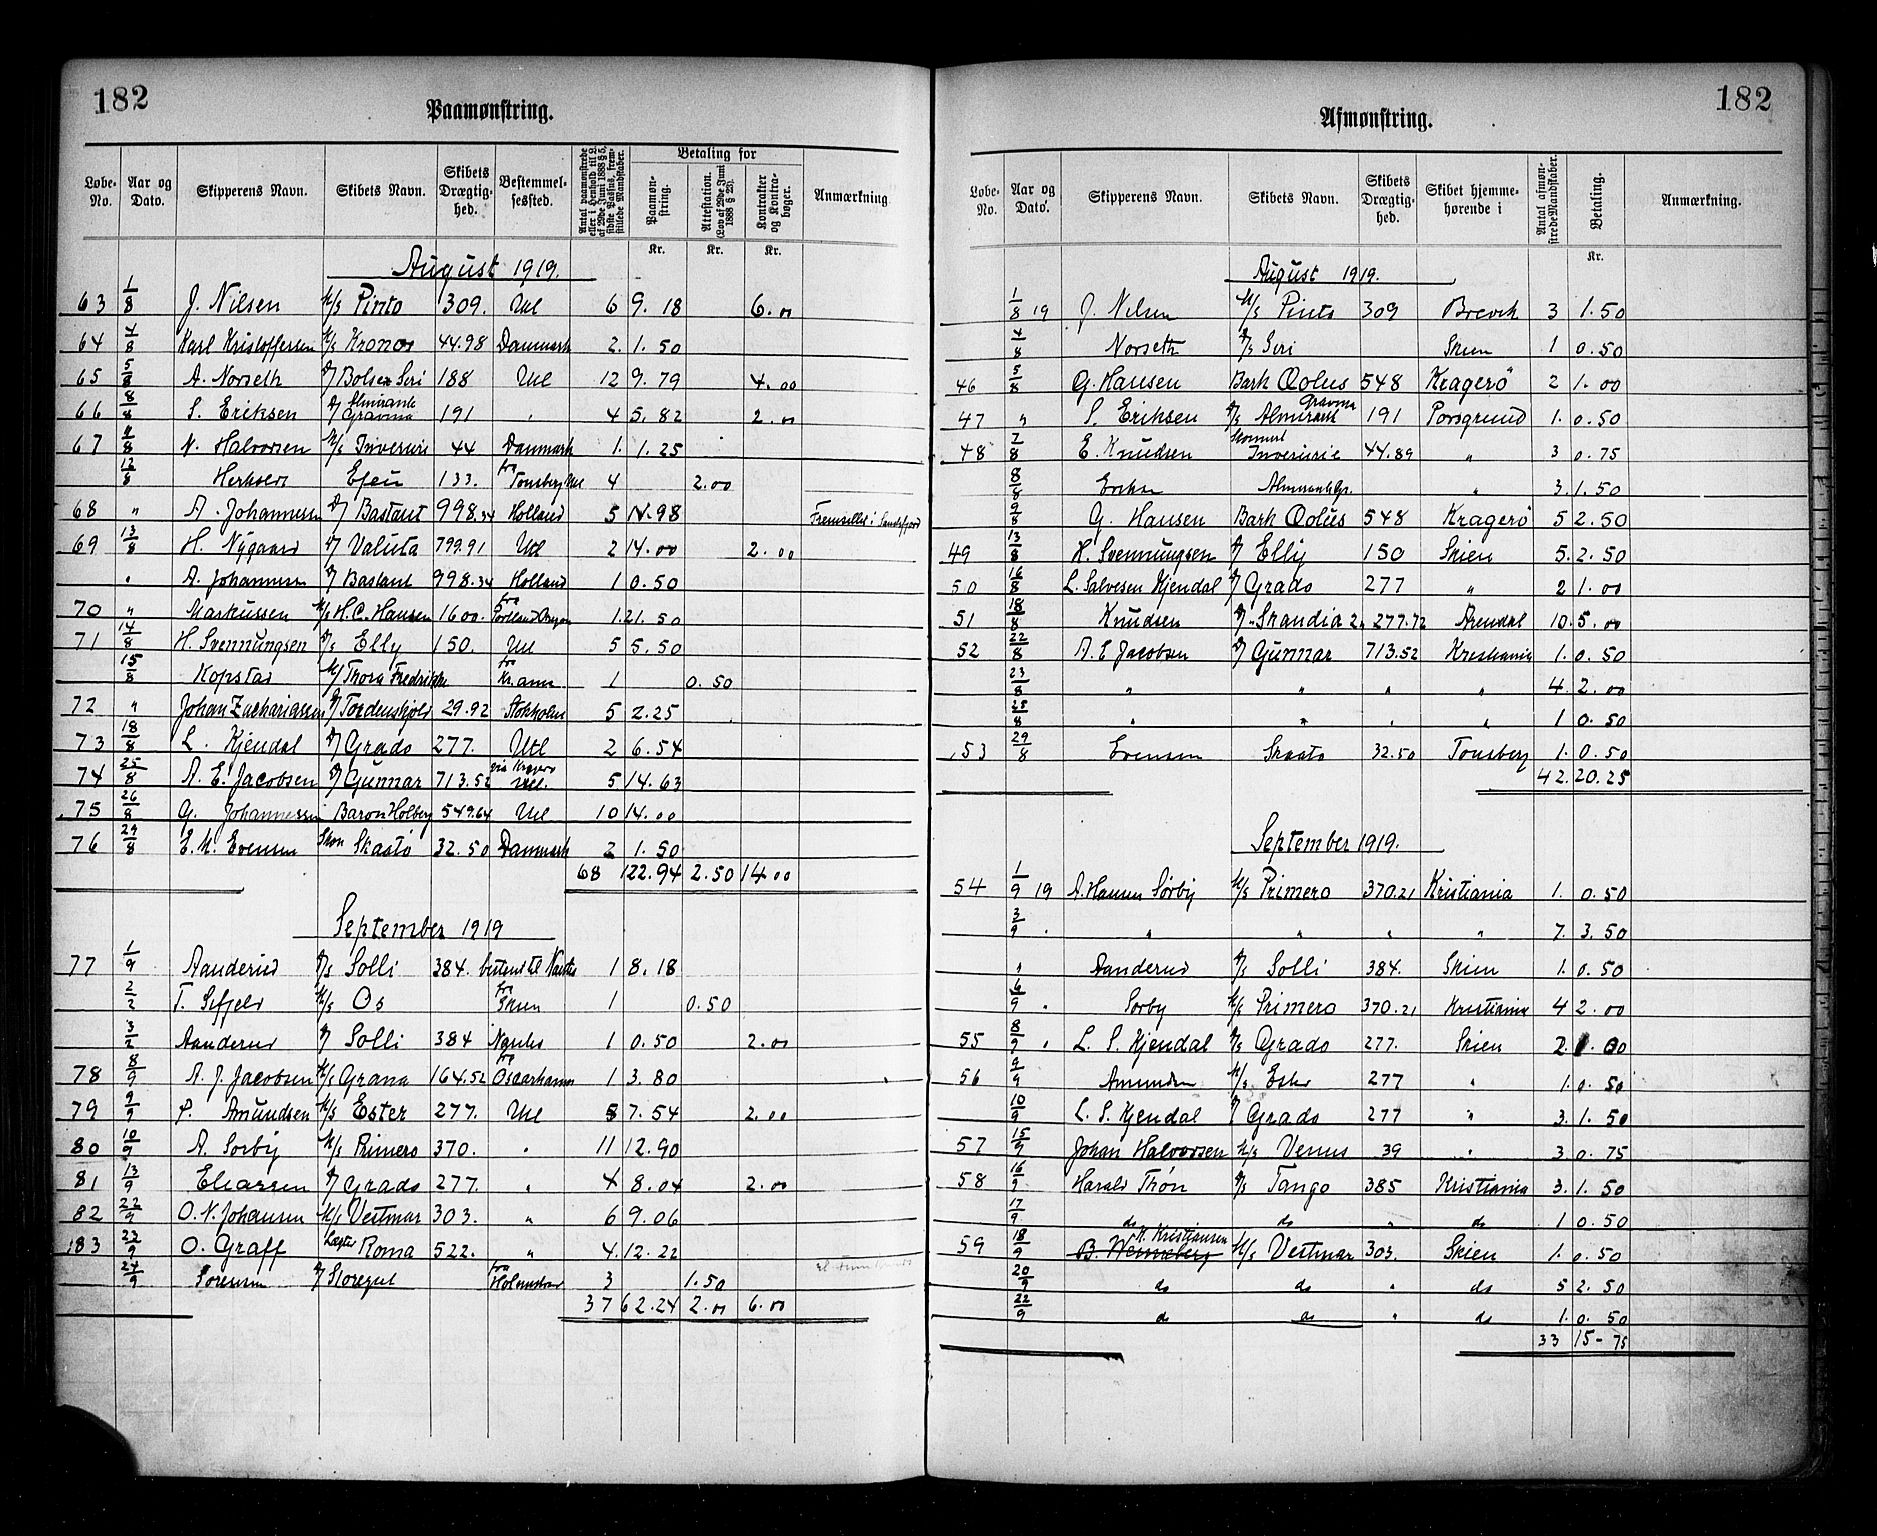 182
Paamønstring.
Løbe-No. Aar og Dato. Skipperens Navn. Skibets Navn. Skibets Drægtig-hed. Bestemmel-sessted. Antal paamønstrede eller i Henhold til L. af 29de Juni 1888 § 5, sidste Passus, frem-stillede Mandskaber. Betaling for Paamøn-string. Attestation. (Lov af 29de Juni 1888 § 29). Kontrakter og Kontra-bøger. Anmærkning
Kr. Kr. Kr.
August 1919.
63 1/8 J. Nilsen M/S Pinto 309. Utl 6 9.18 6.00
64 4/8 Karl Kristoffersen M/S Kronos 44.98 Danmark 2. 1.50
65 5/8 A. Norseth D/ Bolsen Seri 188 Utl 12 9.79 4.00
66 8/8 S. Eriksen D/ Almirante Gravina 191 " 4 5.82 2.00
67 11/8 N. Halvorsen M/S Inverurie 44 Danmark 1. 1.25
12/8 Herkseth 133. fra Tønsberg Utl 4 2.00
68 " A. Johannessen D/ Bastant 998.34 Holland 5 14.98 Fremstillet i Sandefjord
69 13/8 H. Nygaard D/ Valuta 799.91 Utl 2 14.00 2.00
" A. Johannessen D/ Bastant 998.34 Holland 1 0.50
70 " Markussen M/S H.C. Hansen 1600. fra Portland Oregon 1. 21.50
71 14/8 H. Svennungsen D/S Elly 150. Utl 5 5.50
15/8 Kopstad M/ Thora Fredrikke fra Kr.ania 1 0.50
72 " Johan Zachariassen D/ Tordenskjold 29.92 Stokholm 5 2.25
73 18/8 L. Kjendal D/ Grado 277. Utl 2 6.54
74 25/8 A. E. Jacobsen D/ Gunnar 713.52 via Kragerø Utl. 5 14.63
75 26/8 G. Johannessen Baron Holberg 549.64 Utl 10 14.00
76 29/8 E. M. Evensen Skon Skaatø 32.50 Danmark 2 1.50
68 122.94 2.50 14.00
September 1919
77 1/9 Aanderud D/S Solli 384. bestemt til Nantes 1 8.18
2/2 T. Sefjeld M/S Os fra Skien 1 0.50
3/2 Aanderud D/ Solli 384 Nantes 1 0.50 2.00
78 8/9 A. J. Jacobsen M/S Grana 164.52 fra Oscarhamn 1 3.80
79 9/9 P. Amundsen M/S Ester 277. Utl 5 7.54 2.00
80 10/9 A. Sorby M/S Primero 370. " 11 12.90
81 13/9 Eliassen D/ Grado 277. " 4 8.04 2.00
82 22/9 O. N. Johansen M/S Vestmar 303. " 6 9.06
183 23/9 O. Graff Lægter Roma 522. " 4. 12.22
24/9 Sorensen D/ Storegut fra Holmestrand 3 1.50
37 62.24 2.00 6.00
182
Afmønstring.
Løbe-No. Aar og Dato. Skipperens Navn. Skibets Navn. Skibets Drægtig-hed. Skibet hjemme-hørende i Antal afmøn-strede Mandskaber. Betaling. Anmærkning.
Kr.
August 1919.
1/8 19 J. Nilsen M/S Pinto 309 Brevik 3 1.50
4/8 Norseth D/S Seri Skien 1 0.50
46 5/8 G. Hansen Bark Qolus 548 Kragerø 2 1.00
47 " S. Eriksen D/S Almirante Gravina 191 Porsgrund 1. 0.50
48 7/8 E. Knudsen Inverurie 44.89 " 3 0.75
8/8 Eriksen Almirante Gr. " 3. 1.50
9/8 G. Hansen Bark Qolus 548 Kragerø 5 2.50
49 13/8 H. Svennungsen D/ Elly 150 Skien 5. 2.50
50 16/8 L. Salvesen Kjendal D/ Grado 277 " 2 1.00
51 18/8 Knudsen D/ Skandia 2. 277.72 Arendal 10. 5.00
52 22/8 A. E Jacobsen D/ Gunnar 713.52 Kristiania 1. 0.50
23/8 " " " " 4. 2.00
25/8 " " " " 1 0.50
53 29/8 Evensen Skaatø 32.50 Tønsberg 1. 0.50
42. 20.25
September 1919.
54 1/9 19 A. Hansen Sørby M/S Primero 370.21 Kristiania 1. 0.50
3/9 " " " " " 7. 3.50
" Aanderud D/S Solli 384. Skien 1. 0.50
6/9 " Sorby M/S Primero 370.21 Kristiania 4 2.00
55 8/9 " L. S. Kjendal D/S Grado 277. Skien 2. 1.00
56 9/9 Amundsen M/S Ester 277 " 1. 0.50
10/9 L. S. Kjendal D/ Grado 277 " 3. 1.50
57 15/9 Johan Halvorsen M/S Venus 39 " 3 0.75
58 16/9 Harald Thøn D/S Tango 385 Kristiania 3. 1.50
17/9 do do " do 1 0.50
59 18/9 B. Wenneberg K. Kristiansen M/S Vestmar 303. Skien 1. 0.50
20/9 do do " do 5 2.50
22/9 do do " do 1. 0.50
33 15-75